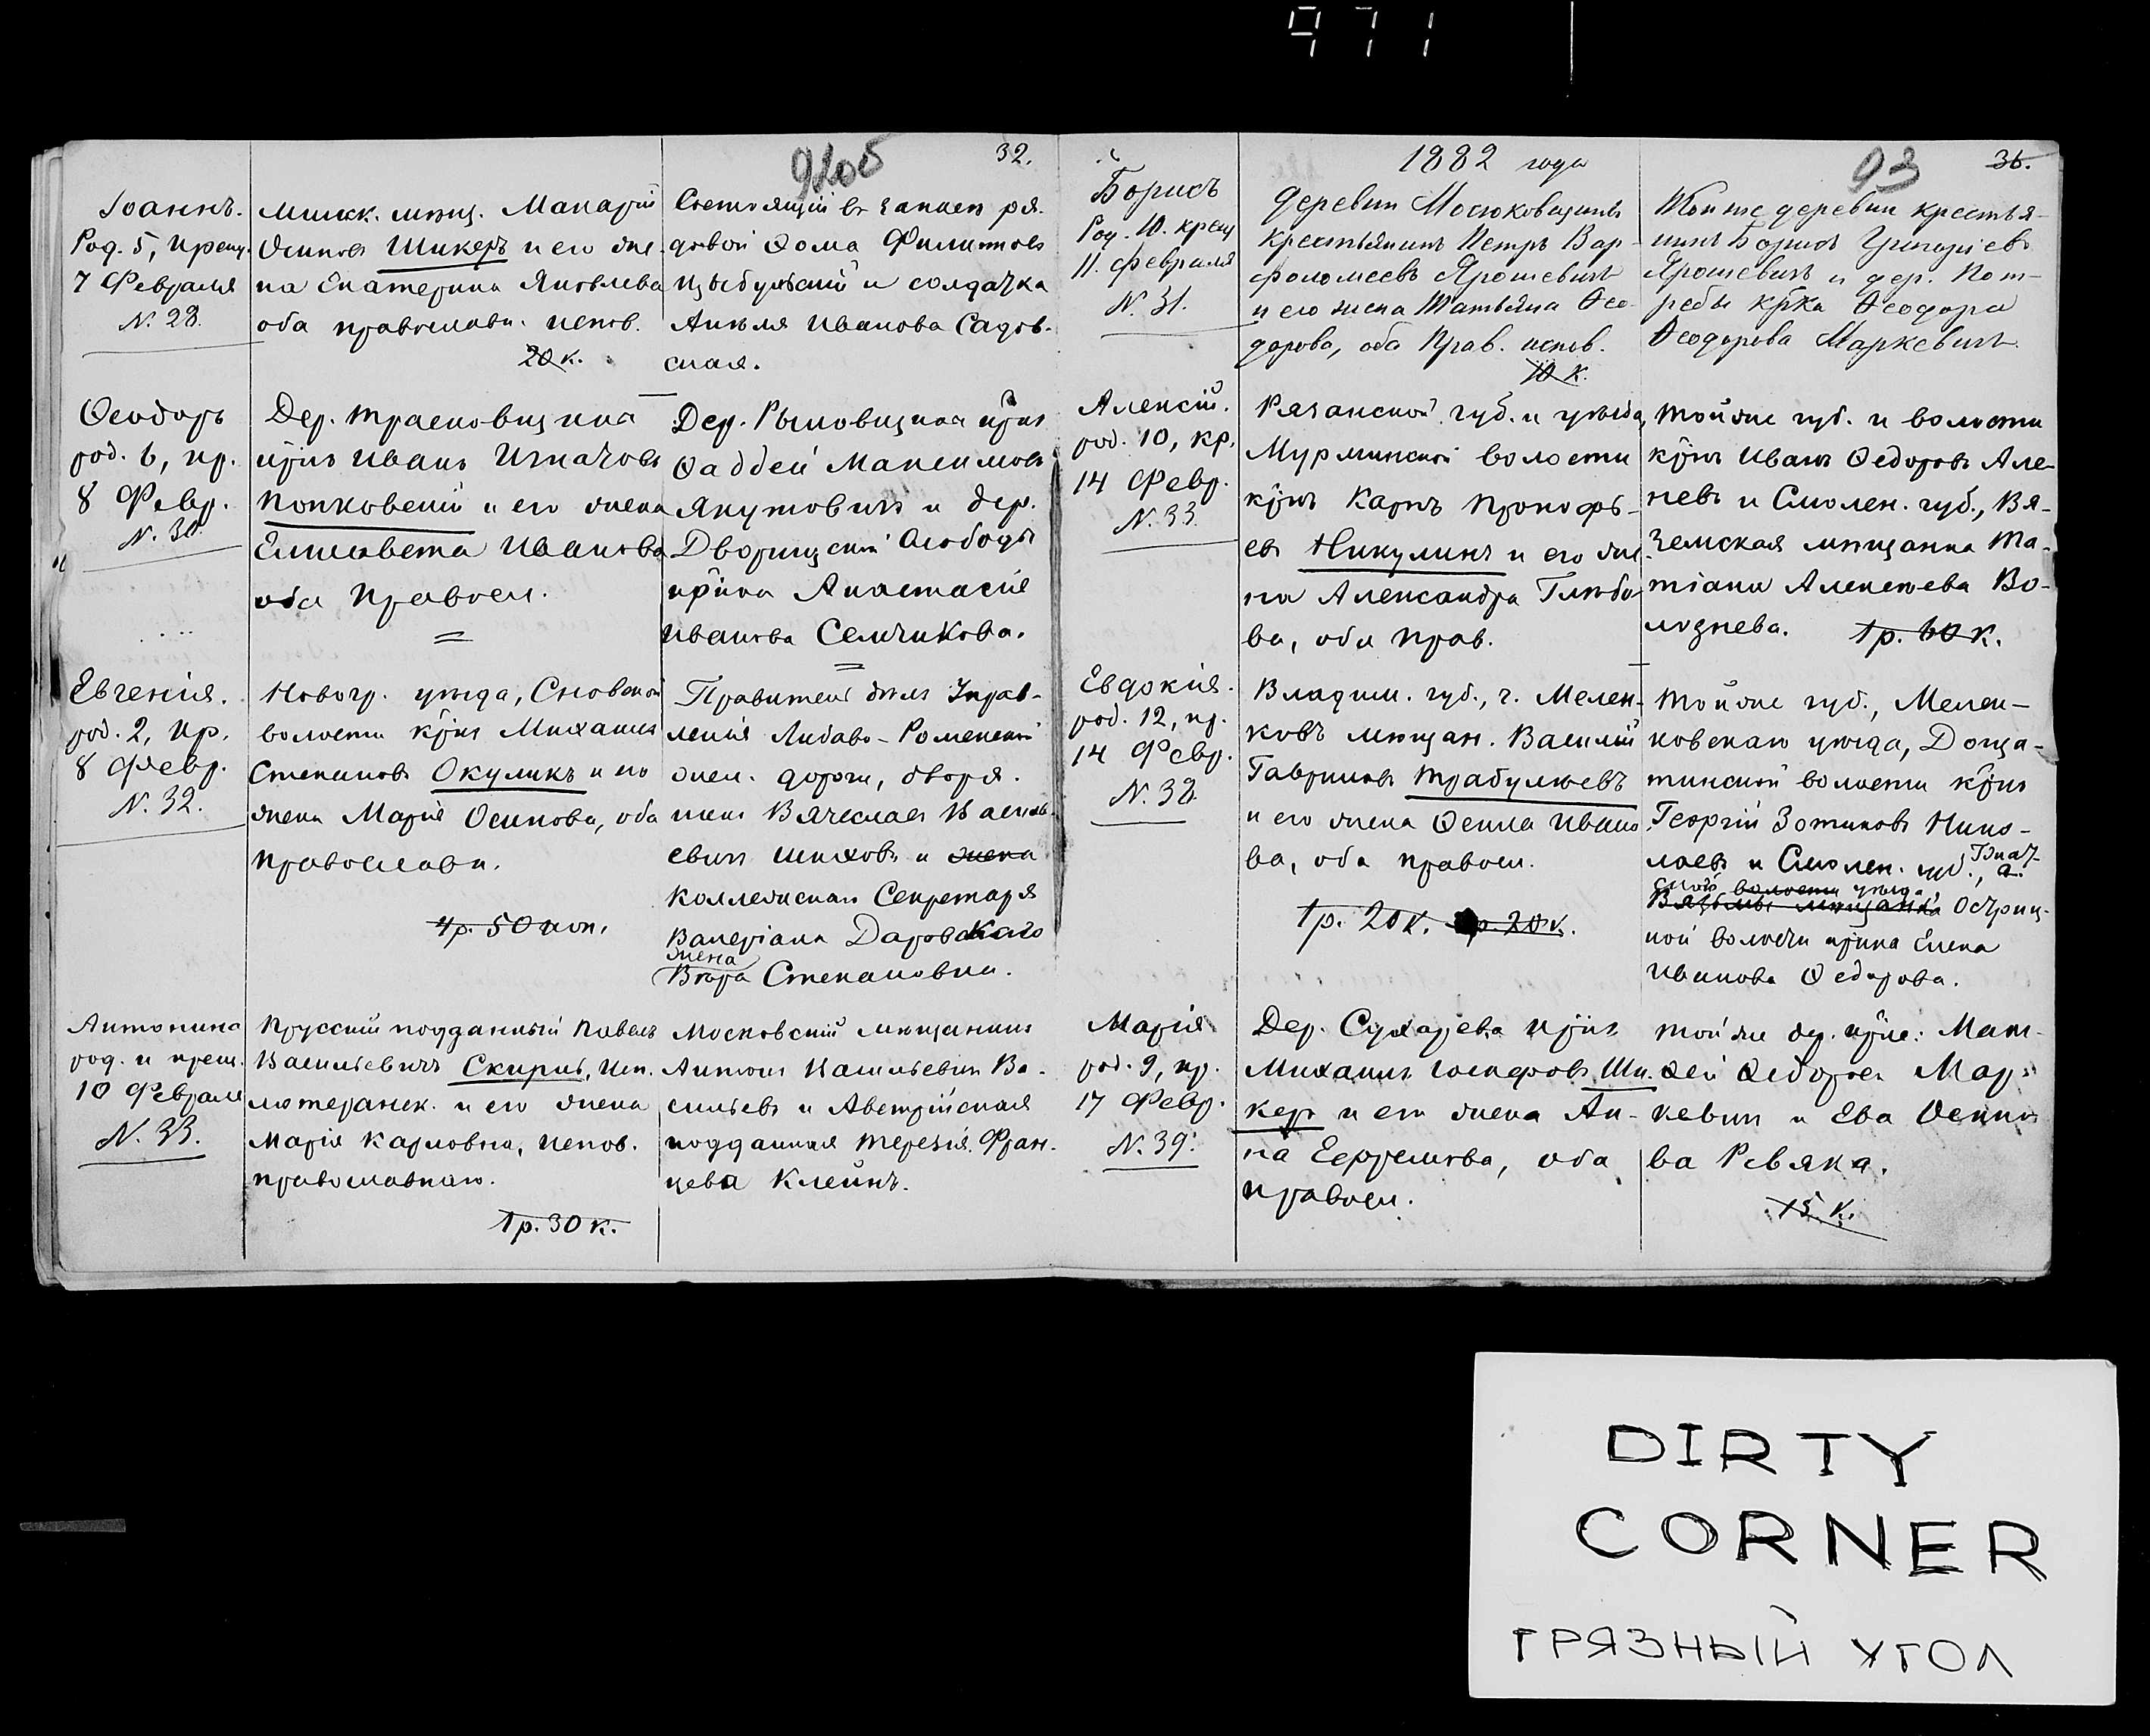 971
92об
32.
Іоаннъ.
Род. 5, крещ.
7 Февраля
N. 28.
Минск. мѣщ. Макарій
Осиповъ Шикеръ и его же-
на Екатерина Яковлева
оба православн. испов.
20 к.
Состоящій въ запасѣ ря-
довой Ѳома Филиповъ
Цыбульскій и солдатка
Анеля Иванова Садов-
ская.
Ѳеодоръ
род. 6, кр.
8 Февр.
N. 30.
Дер.
крнъ Иванъ Игнатовъ
Попковскій и его жена
Елисавета Иванова
оба Правосл.
Дер. крнъ
Ѳаддей Максимовъ
Якутовичъ и дер.
Дворищской Слободы
крнка Анастасія
Иванова Семчикова.
Евгенія.
род. 2, кр.
8 Февр.
N. 32.
Новогр. уѣзда, Сновской
волости крнъ Михаилъ
Степановъ Окуликъ и его
жена Марія Осипова, оба
православн.
1р. 50 коп.
Правитель дѣлъ Управ-
ленія Либаво-Роменской
жел. дороги, дворя-
нинъ Вячеславъ Василь-
евичъ Шиховъ и жена
Коллежскаго Секретаря
Валеріана Даровскаго
жена
Вѣра Степановна.
Антонина
род. и крещ.
10 Февраля
N. 33.
Прусскій подданный Павелъ
Васильевичъ Скирлъ, исп.
лютеранск. и его жена
Марія Карловна, испов.
православнаго.
1р. 30 к.
Московскій мѣщанинъ
Антонъ Васильевичъ Ва-
сильевъ и Австрійская
подданная Терезія Фран-
цева Клейнъ.
1882 года
93
36.
Борисъ
Род. 10. крещ
11. Февраля
N. 31.
Деревни Мосюковщины
крестьянинъ Петръ Вар-
фоломеевъ Ярошевичъ
и его жена Татьяна Ѳео-
дорова, оба Прав. испов.
10 к.
Тойже деревни крестья-
нинъ Борисъ Григорьевъ
Ярошевичъ и дер. Пот-
ребы крка Ѳеодора
Ѳеодорова Маркевичъ
Алексій.
род. 10, кр.
14 Февр.
N. 33.
Рязанской губ. и уѣзда,
Мурминской волости
крнъ Карпъ Прокофь-
евъ Никулинъ и его же-
на Александра Глѣбо-
ва, оба прав.
Тойже губ. и волости
крнъ Иванъ Ѳедоровъ Але-
невъ и Смолен. губ., Вя-
земская мѣщанка Та-
тіана Алексѣева Во-
лознева. 1р. 60 к.
Евдокія.
род. 12, кр.
14 Февр.
N. 38.
Владим. губ., г. Мелен-
ковъ мѣщан. Василій
Гавриловъ Трабулѣевъ
и его жена Ѳекла Ивано-
ва, оба правосл.
1р. 20 к. 20 к.
Тойже губ., Мелен-
ковскаго уѣзда, Доща-
тинской волости крнъ
Георгій Зотиковъ Нико-
лаевъ и Смолен. губ., г.
волости уѣзда,
Вязьмы мѣщанка
ной волости крнка Елена
Иванова Ѳедорова.
Марія
род. 9, кр.
17 Февр.
N. 39.
Дер. Сухарева крнъ
Михаилъ Іосифовъ Ши-
керъ и его жена Ан-
на Ефремова, оба
правосл.
Тойже дер. крне: Мат-
ѳей Ѳедоровъ Мар-
кевичъ и Ева Осипо-
ва Ревяка.
15 к.
DIRTY
CORNER
ГРЯЗНЫЙ УГОЛ